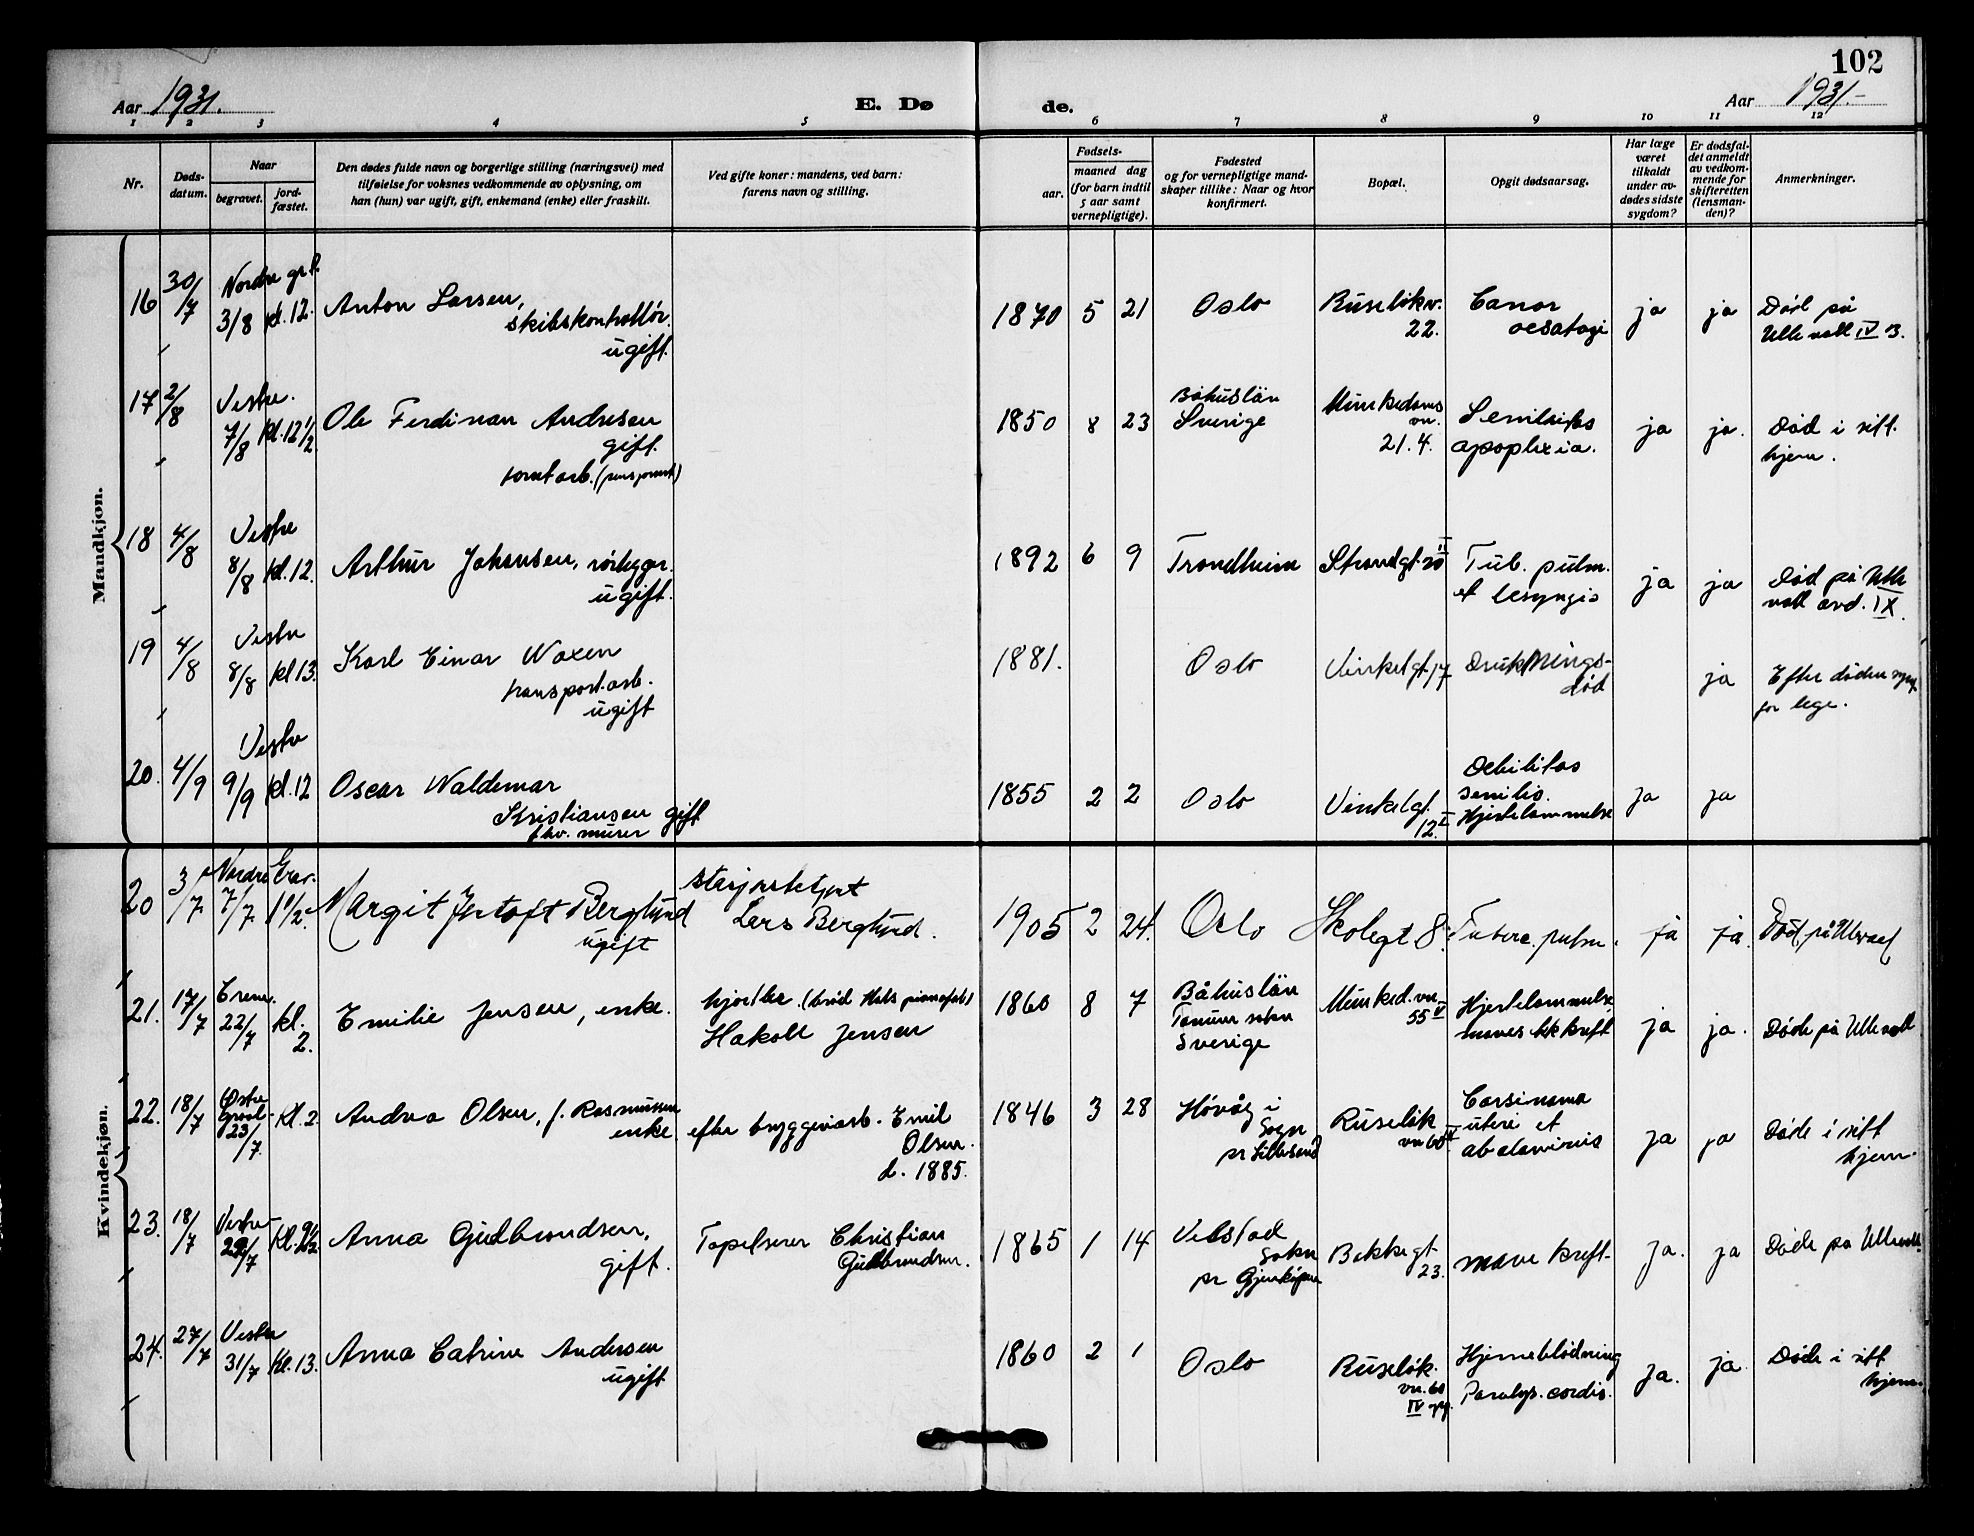 102
Aar 1931.
E. Døde.
Aar 1931.-
1 2 3 4 5 6 7 8 9 10 11 12
Nr.
Døds-
datum.
Naar
begravet.
jord-
fæstet.
Den dødes fulde navn og borgerlige stilling (næringsvei) med
tilføielse for voksnes vedkommende av oplysning, om
han (hun) var ugift, gift, enkemand (enke) eller fraskilt.
Ved gifte koner: mandens, ved barn:
farens navn og stilling.
Fødsels-
aar.
maaned dag
(for barn indtil
5 aar samt
vernepligtige).
Fødested
og for vernepligtige mand-
skaper tillike: Naar og hvor
konfirmert.
Bopæl.
Opgit dødsaarsag.
Har læge
været
tilkaldt
under av-
dødes sidste
sygdom?
Er dødsfal-
det anmeldt
av vedkom-
mende for
skifteretten
(lensman-
den)?
Anmerkninger.
Mandkjøn.
16 30/7 Nordre gr.l.
3/8 kl. 12.
Anton Larsen,
skibskontrollør.
ugift.
1870 5 21 Oslo
Ruseløkv.
22.
Cancr
oesofagi
ja ja
Död på
Ullevall IV B.
17 2/8 Vestre.
7/8 kl. 12 1/2
Ole Ferdinan Andresen
gift.
1850 8 23
Båhuslän
Sverige
Munkedams
vn.
21. 4.
Senilitas
apoplexia.
ja ja.
Död i sitt
hjem.
18 4/8 Vestre
8/8 kl. 12.
Arthur Johansen, rörlegger.
ugift.
1892 6 9 Trondheim
Strandgt. 20 II
Tub. pulm.
et laryngis
ja ja
Död på Ulle
vall avd. IX.
19 4/8 Vestre
8/8 kl 13.
Karl Einar Waxen
transport.arb.
ugift
1881. Oslo
Vinkelgt. 17
Druknings-
död
ja
Efter döden
for lege.
20. 4/9 Vestre
9/9 kl. 12
Oscar Waldemar
Kristiansen gift
fhv. murer
1855 2 2 Oslo
Vinkelgt.
12. I
Debilitas
senilis.
Hjertelammelse
ja ja
Kvindekjøn.
20 3/7 Nordre Grav.
7/7 1 1/2.
Margit Jentoft Berglund
ugift
Lars Berglund.
1905 2 24. Oslo
Skolegt 8.
Tuberc. pulm.
ja ja.
Död. på Ullevaal
21. 17/7 Crem.
22/7 kl.
2.
Emilie Jensen, enke.
Hakon Jensen
1860 8 7
Båhuslän
Tanum sokn
Sverige
Munked. vn.
55 V
Hjertelammelse
maves kk kreft
ja ja.
Döde på Ullevall
22. 18/7 Østre
gravl.
23/7 kl. 2.
Andrea Olsen, f. Rasmussen
enke.
efter bryggeriarb. Emil
Olsen.
d. 1885.
1846 3 28
Hövåg i
Sogn
pr Lillesand
Ruseløk
vn 60 IV
Carsinoma
uteri et
abdominis
ja ja
Döde i sitt
hjem.
23. 18/7 Vestre
22/7
Anna Gudbrandsen,
gift.
Tapetserer Christian
Gudbrandsen.
1865 1 14
Velstad
Sokn
pr Gjenköping
Bakkegt.
23.
mave kreft.
ja. ja
Döde på Ullevall.
24. 27/7 Vestre
31/7 kl. 13.
Anna Catrine Andersen
ugift
1860 2 1 Oslo
Ruseløk.
vn. 60
IV
Hjerneblödning
Paralys. cordis.
ja. ja
Döde i sitt
hjem.